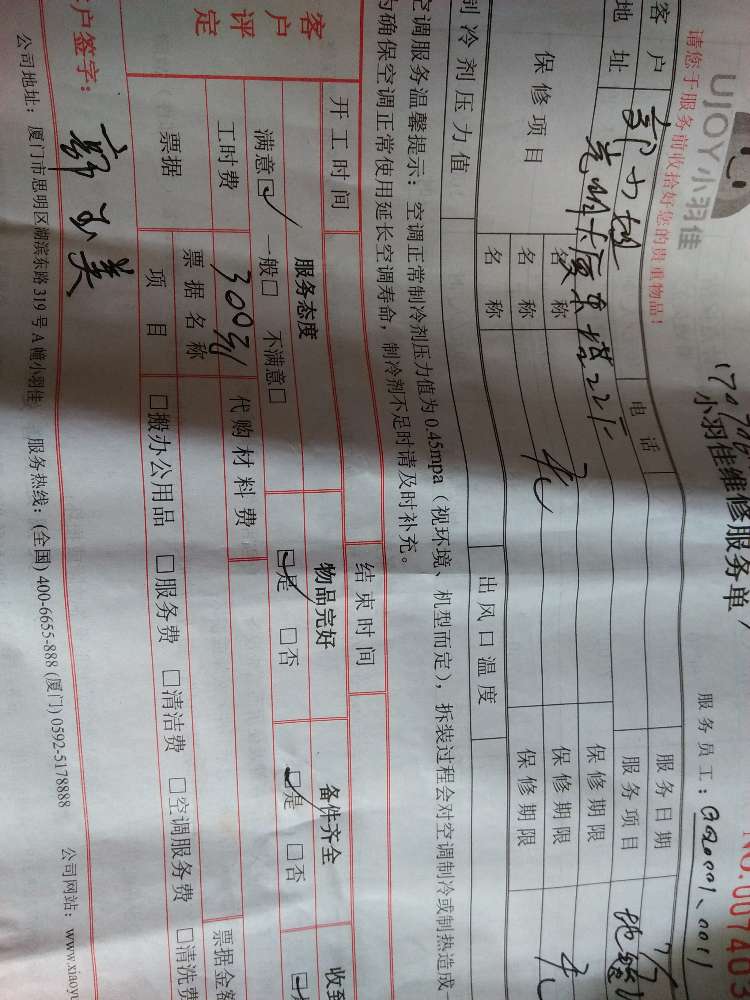 UJOY小羽佳
小羽佳维修服务单
NO.007403
请您于服务前收拾好您的贵重物品!
服务员工:
客户
电话
服务日期
7/7
地址 光明大厦东塔22F
服务项目
保修项目
名称
保修期限
名称 无
保修期限 无
名称
保修期限
制冷剂压力值
出风口温度
空调服务温馨提示:空调正常制冷剂压力值为0.45mpa(视环境、机型而定),拆装过程会对空调制冷或制热造成一
为确保空调正常使用延长空调寿命,制冷剂不足时请及时补充。
客户评定
开工时间
结束时间
服务态度
物品完好
备件齐全
收到
满意☑ 一般□ 不满意□
☑是 □否
☑是 □否
工时费 300元
代购材料费
票据
票据名称
票据金额
项目
□搬办公用品 □服务费 □清洁费 □空调服务费 □清洗费
客户签字:
公司地址:厦门市思明区湖滨东路319号A幢小羽佳 服务热线:(全国)400-6655-888(厦门)0592-5178888 公司网站:www.xiaoyu